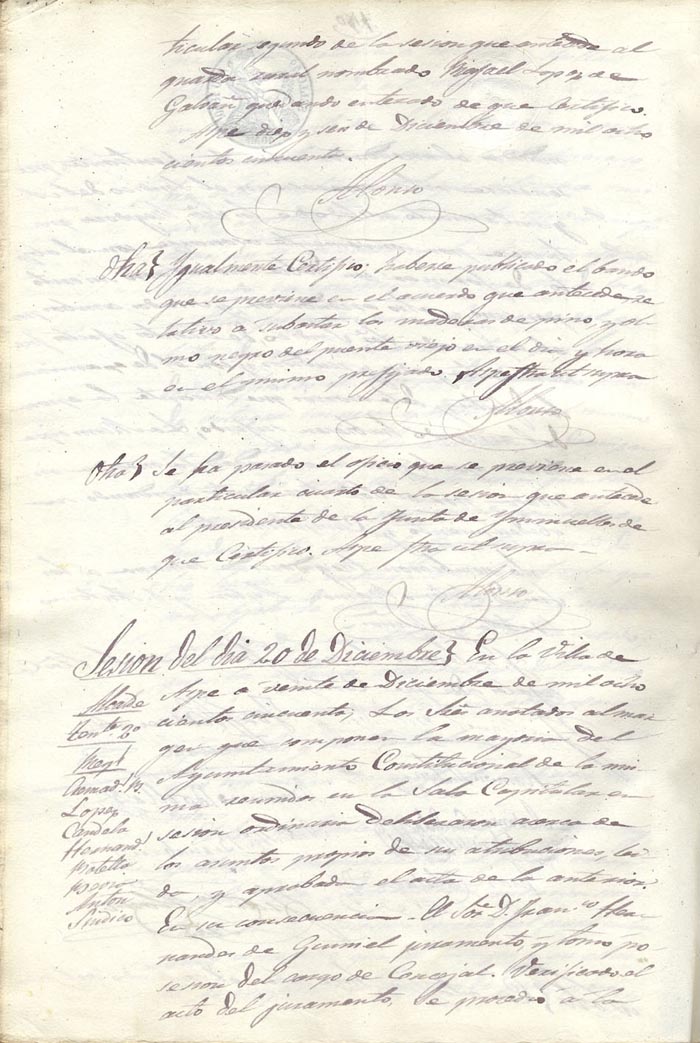 ticular segundo de la sesion que antecede al
guarda rural nombrado Rafael Lopez de
Galvañ quedando enterado de que Certifico.
Aspe diez y seis de Diciembre de mil ocho
cientos cincuenta.
Alonso
Otra} Igualmente Certifico; haberse publicado el bando
que se previene en el acuerdo que antecede re
lativo á subastar las maderas de pino, y ol-
mo negro del puente viejo en el dia y hora
en el mismo prefijado. Aspe fha ut supra
Alonso
Otra} Se ha pasado el oficio que se previene en el
particular cuarto de la sesion que antecede
al presidente de la Junta de
que Certifico. Aspe fha ut supra
Alonso
Sesion del dia 20 de Diciembre} En la Villa de
Aspe á veinte de Diciembre de mil ocho
cientos cincuenta; Los Sres anotados al mar
gen que componen la mayoria del
Ayuntamiento Constitucional de la mis
ma reunidos en la Sala Capitular en
sesion ordinaria deliberaron acerca de
los asuntos propios de sus atribuciones, lei
da, y aprobada el acta de la anterior.
En su consecuencia. El Sor. D. Fran.co Her
nandez de Gumiel juramento, y tomo po
sesion del cargo de Concejal. Verificado el
acto del juramento, se procedió á la
Alcalde
Tente 2o
Regs
Lopez
Candela
Hernand.
Botella
Anton
Sindico